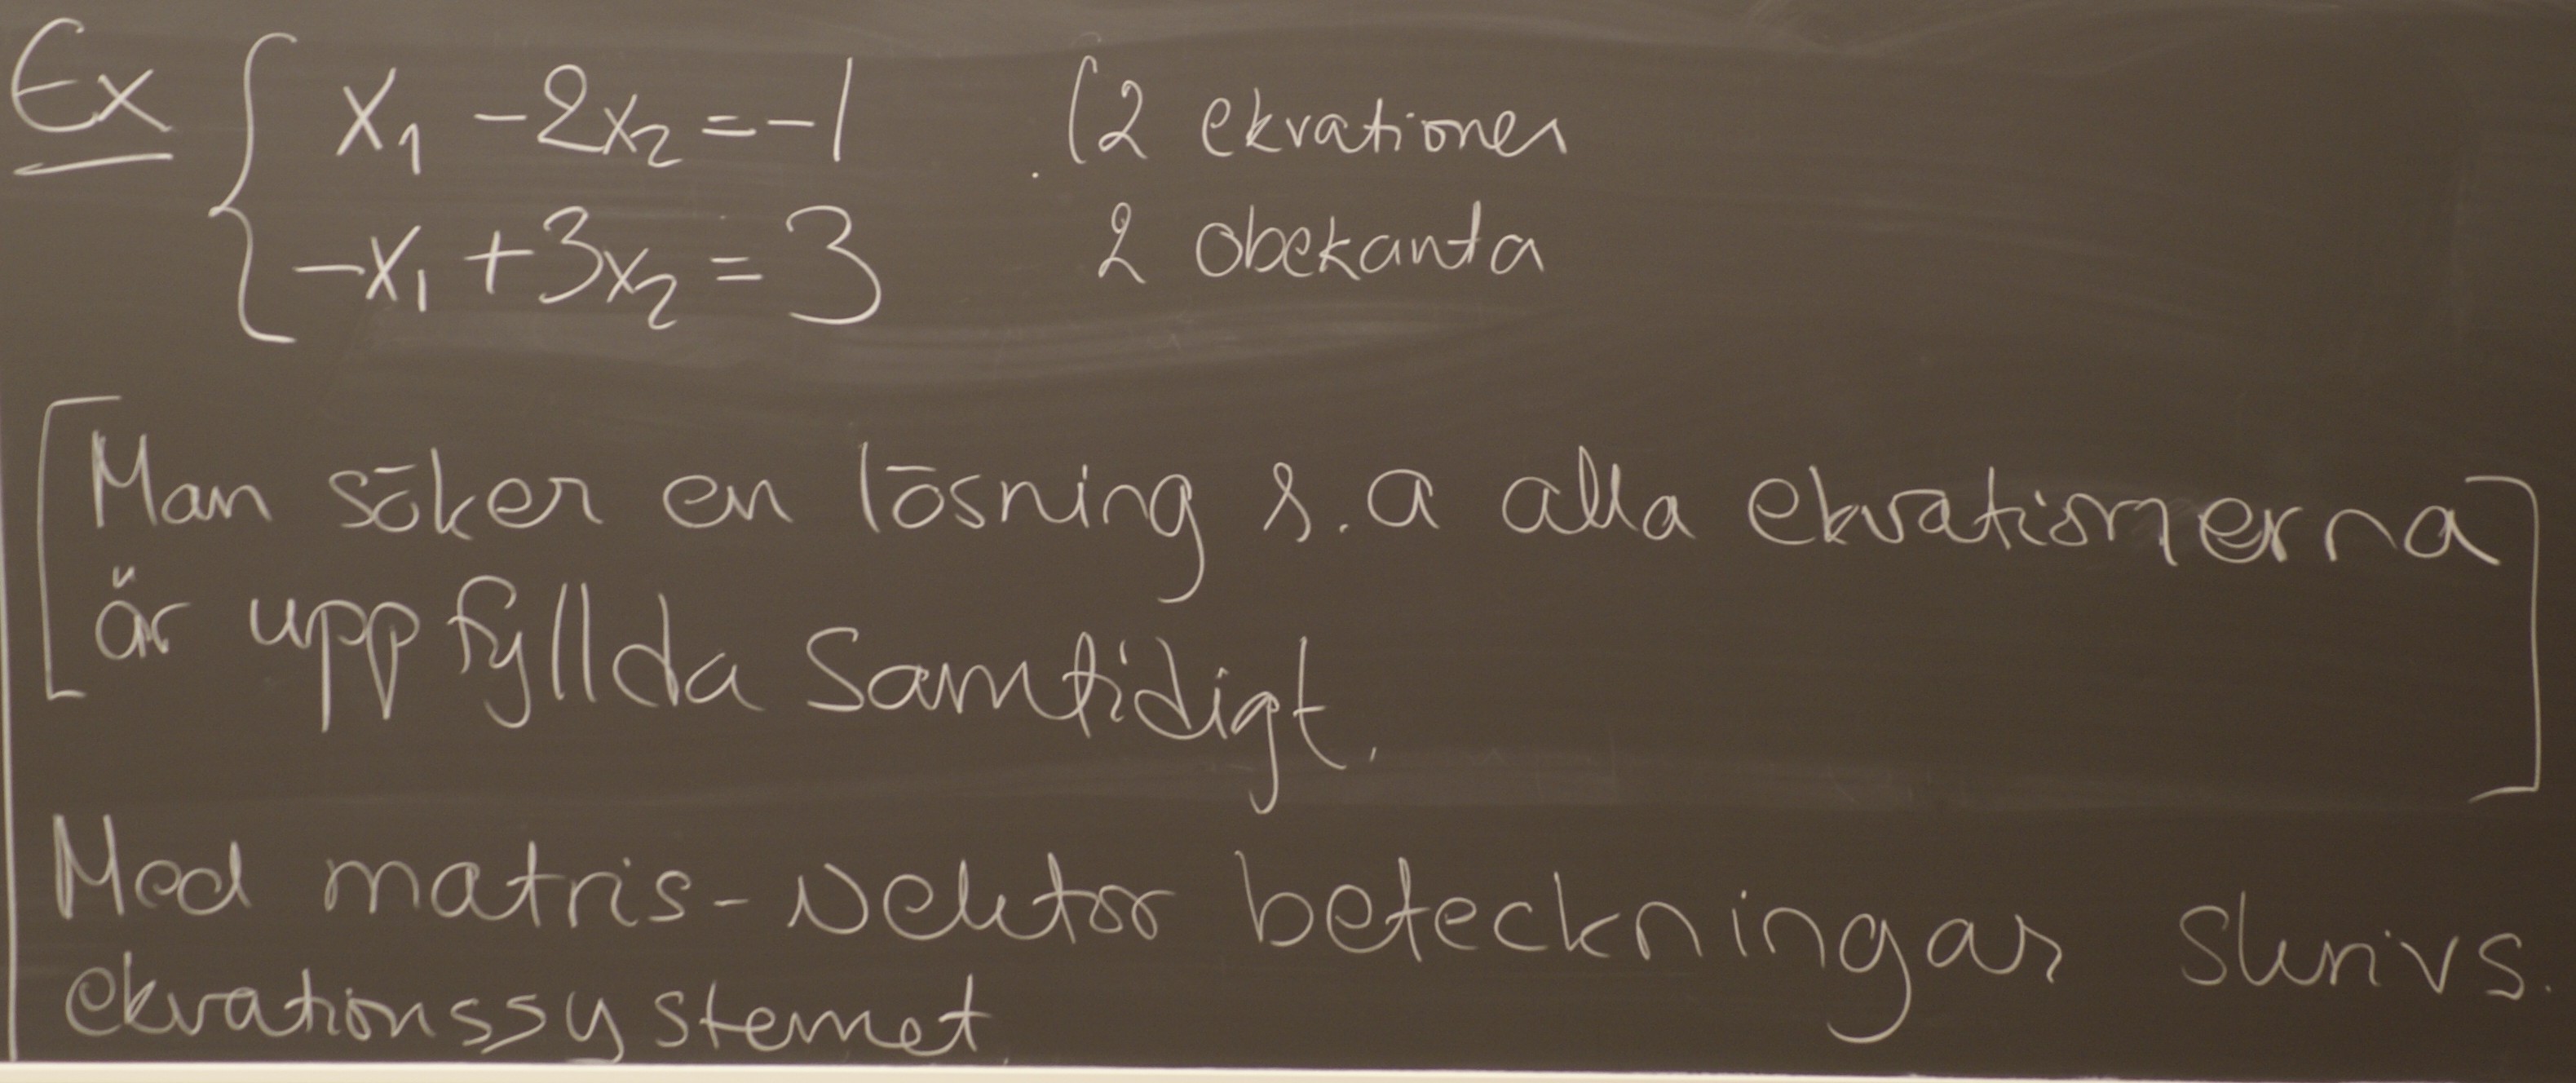 Ex { x₁ - 2x₂ = -1 (2 ekvationer
-x₁ + 3x₂ = 3 2 obekanta
[Man söker en lösning s.a alla ekvationerna]
är uppfyllda samtidigt.
Med matris-vektor beteckningar skrivs.
ekvationssystemet